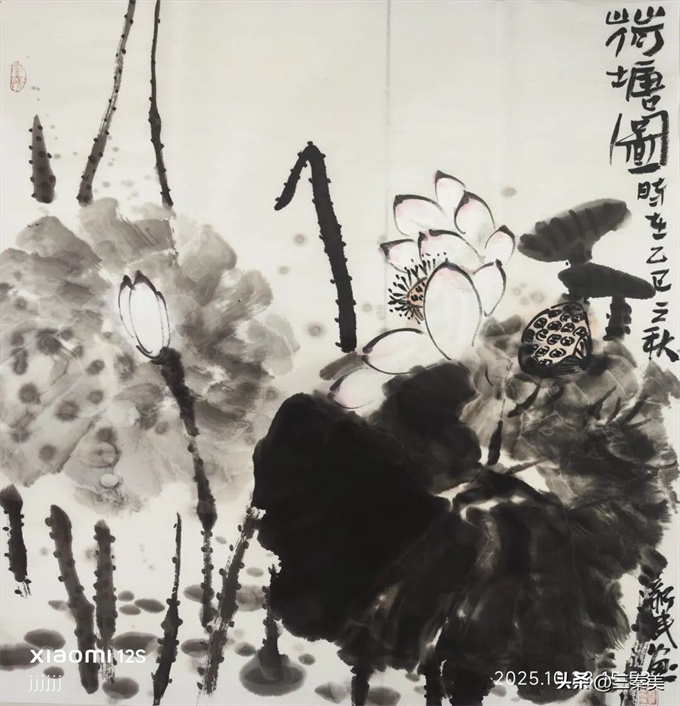 荷塘圖
時在乙巳立秋
xiaomi 12S
jjjjjj
2025.10
头条 @三秦美